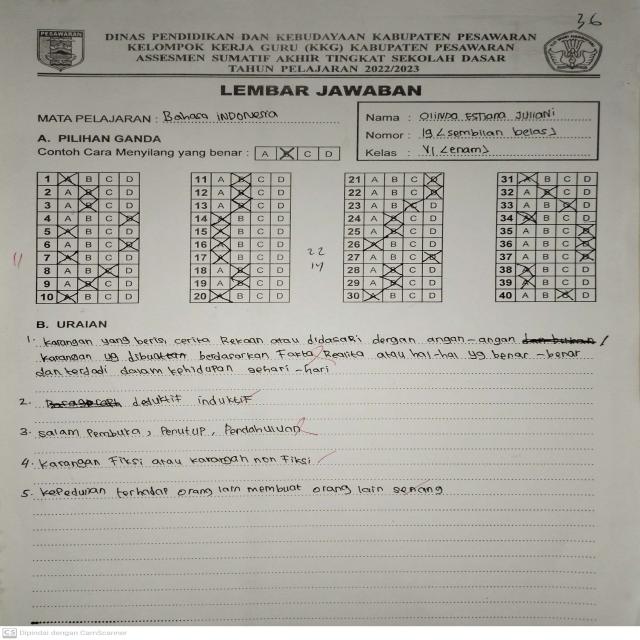 36
PESAWARAN
DINAS PENDIDIKAN DAN KEBUDAYAAN KABUPATEN PESAWARAN
KELOMPOK KERJA GURU (KKG) KABUPATEN PESAWARAN
ASSESMEN SUMATIF AKHIR TINGKAT SEKOLAH DASAR
TAHUN PELAJARAN 2022/2023
LEMBAR JAWABAN
MATA PELAJARAN : Bahasa INDONESIA
Nama : OLINDA ESTIARA JULIANI
Nomor : 19 (sembilan belas)
Kelas : VI (enam)
A. PILIHAN GANDA
Contoh Cara Menyilang yang benar : A B C D
1 A B C D 11 A B C D 21 A B C D 31 A B C D
2 A B C D 12 A B C D 22 A B C D 32 A B C D
3 A B C D 13 A B C D 23 A B C D 33 A B C D
4 A B C D 14 A B C D 24 A B C D 34 A B C D
5 A B C D 15 A B C D 25 A B C D 35 A B C D
6 A B C D 16 A B C D 26 A B C D 36 A B C D
7 A B C D 17 A B C D 27 A B C D 37 A B C D
8 A B C D 18 A B C D 28 A B C D 38 A B C D
9 A B C D 19 A B C D 29 A B C D 39 A B C D
10 A B C D 20 A B C D 30 A B C D 40 A B C D
22
14
B. URAIAN
1. Karangan yang berisi cerita Rekaan atau didasari dengan angan-angan
karangan yg dibuat berdasarkan Fakta Realita atau hal-hal yg benar-benar
dan terjadi dalam kehidupan sehari-hari
2. deduktif induktif
3. salam Pembuka, Penutup, Pendahuluan
4. Karangan Fiksi atau karangan non Fiksi
5. kepedulian terhadap orang lain membuat orang lain senang
CS Dipindai dengan CamScanner